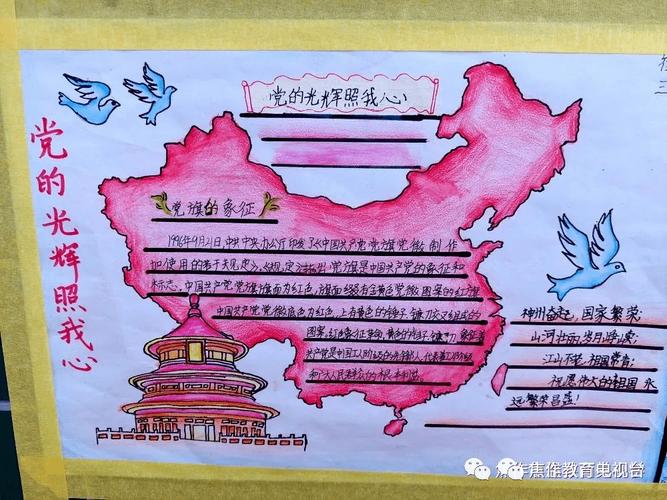 党的光辉照我心
党的光辉照我心
党旗的象征
1996年9月21日中共中央办公厅印发了《中国共产党党旗党徽制作
和使用的若干规定》,《规定》指出,党旗是中国共产党的象征和
标志。中国共产党党旗旗面为红色,旗面缀有金黄色党徽图案的红旗
中国共产党党徽底色为红色,上有黄色的锤子镰刀交叉组成的
图案,红色象征革命,黄色的锤子、镰刀
共产党是中国工人阶级的先锋队,代表着工人阶级
和广大人民群众的根本利益。
神州奋起,国家繁荣;
山河壮丽,岁月峥嵘;
江山不老,祖国常青;
祝愿伟大的祖国永
远繁荣昌盛!
三
焦作教育电视台